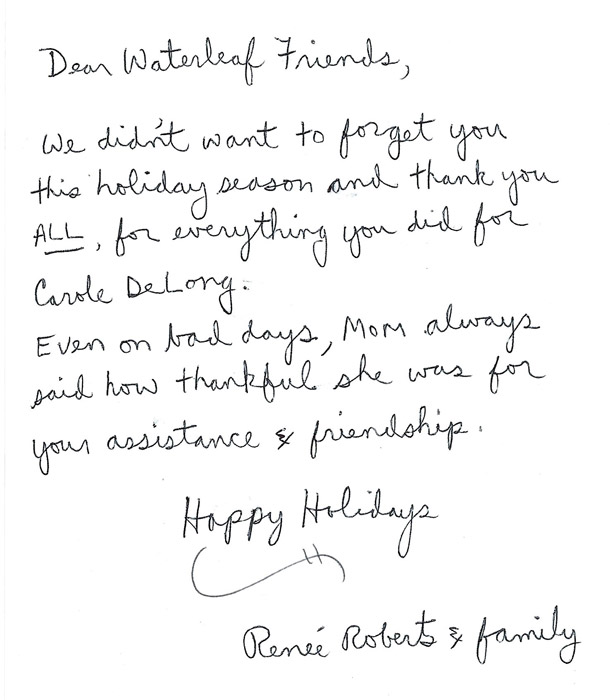 Dear Waterleaf Friends,
We didn't want to forget you
this holiday season and thank you
ALL, for everything you did for
Carole DeLong.
Even on bad days, Mom always
said how thankful she was for
your assistance & friendship.
Happy Holidays
Reneé Roberts & family